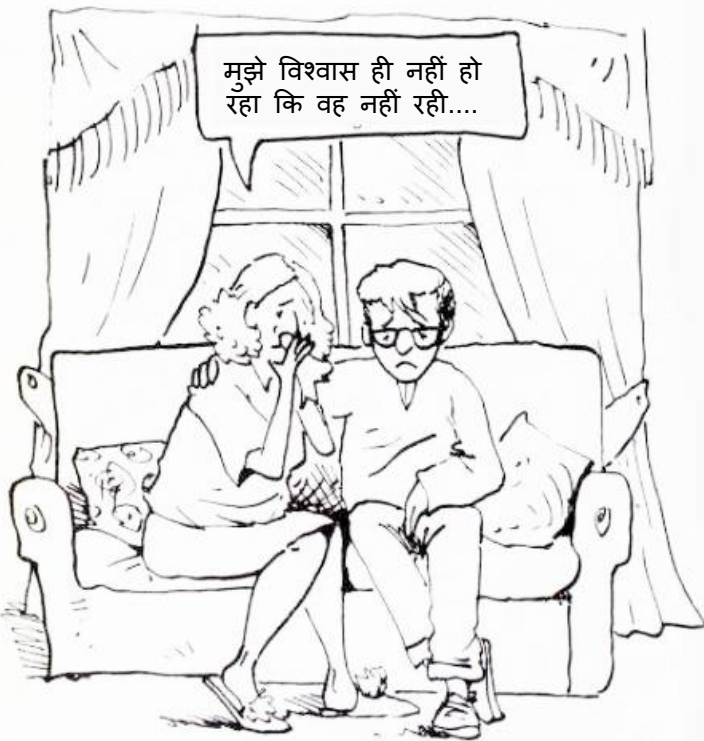 मुझे विश्वास ही नहीं हो
रहा कि वह नहीं रही....